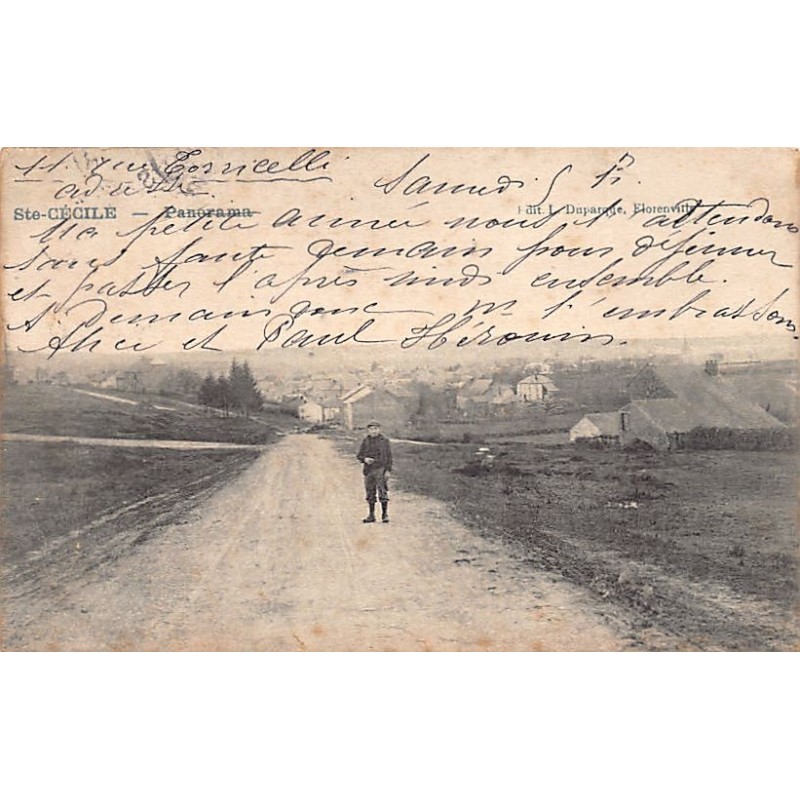 11 rue Torricelli
Samedi 5 h
adresse
Ste-CÉCILE — Panorama
Edit. L. Duparque, Florenville
Ma petite Aimée nous t'attendons
sans faute demain pour déjeuner
et passer l'après midi ensemble.
A Demain donc on t'embrassons.
Alice et Paul Hérouin